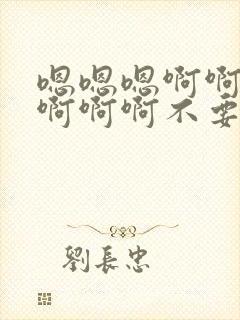 嗯嗯嗯啊啊
啊啊啊不要
劉長忠